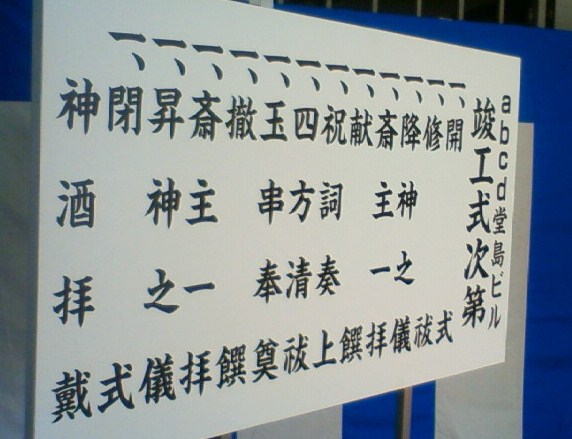 abcd堂島ビル
竣工式次第
一、開式
一、修祓
一、降神之儀
一、斎主一拝
一、献饌
一、祝詞奏上
一、四方清祓
一、玉串奉奠
一、撤饌
一、斎主一拝
一、昇神之儀
一、閉式
神酒拝戴